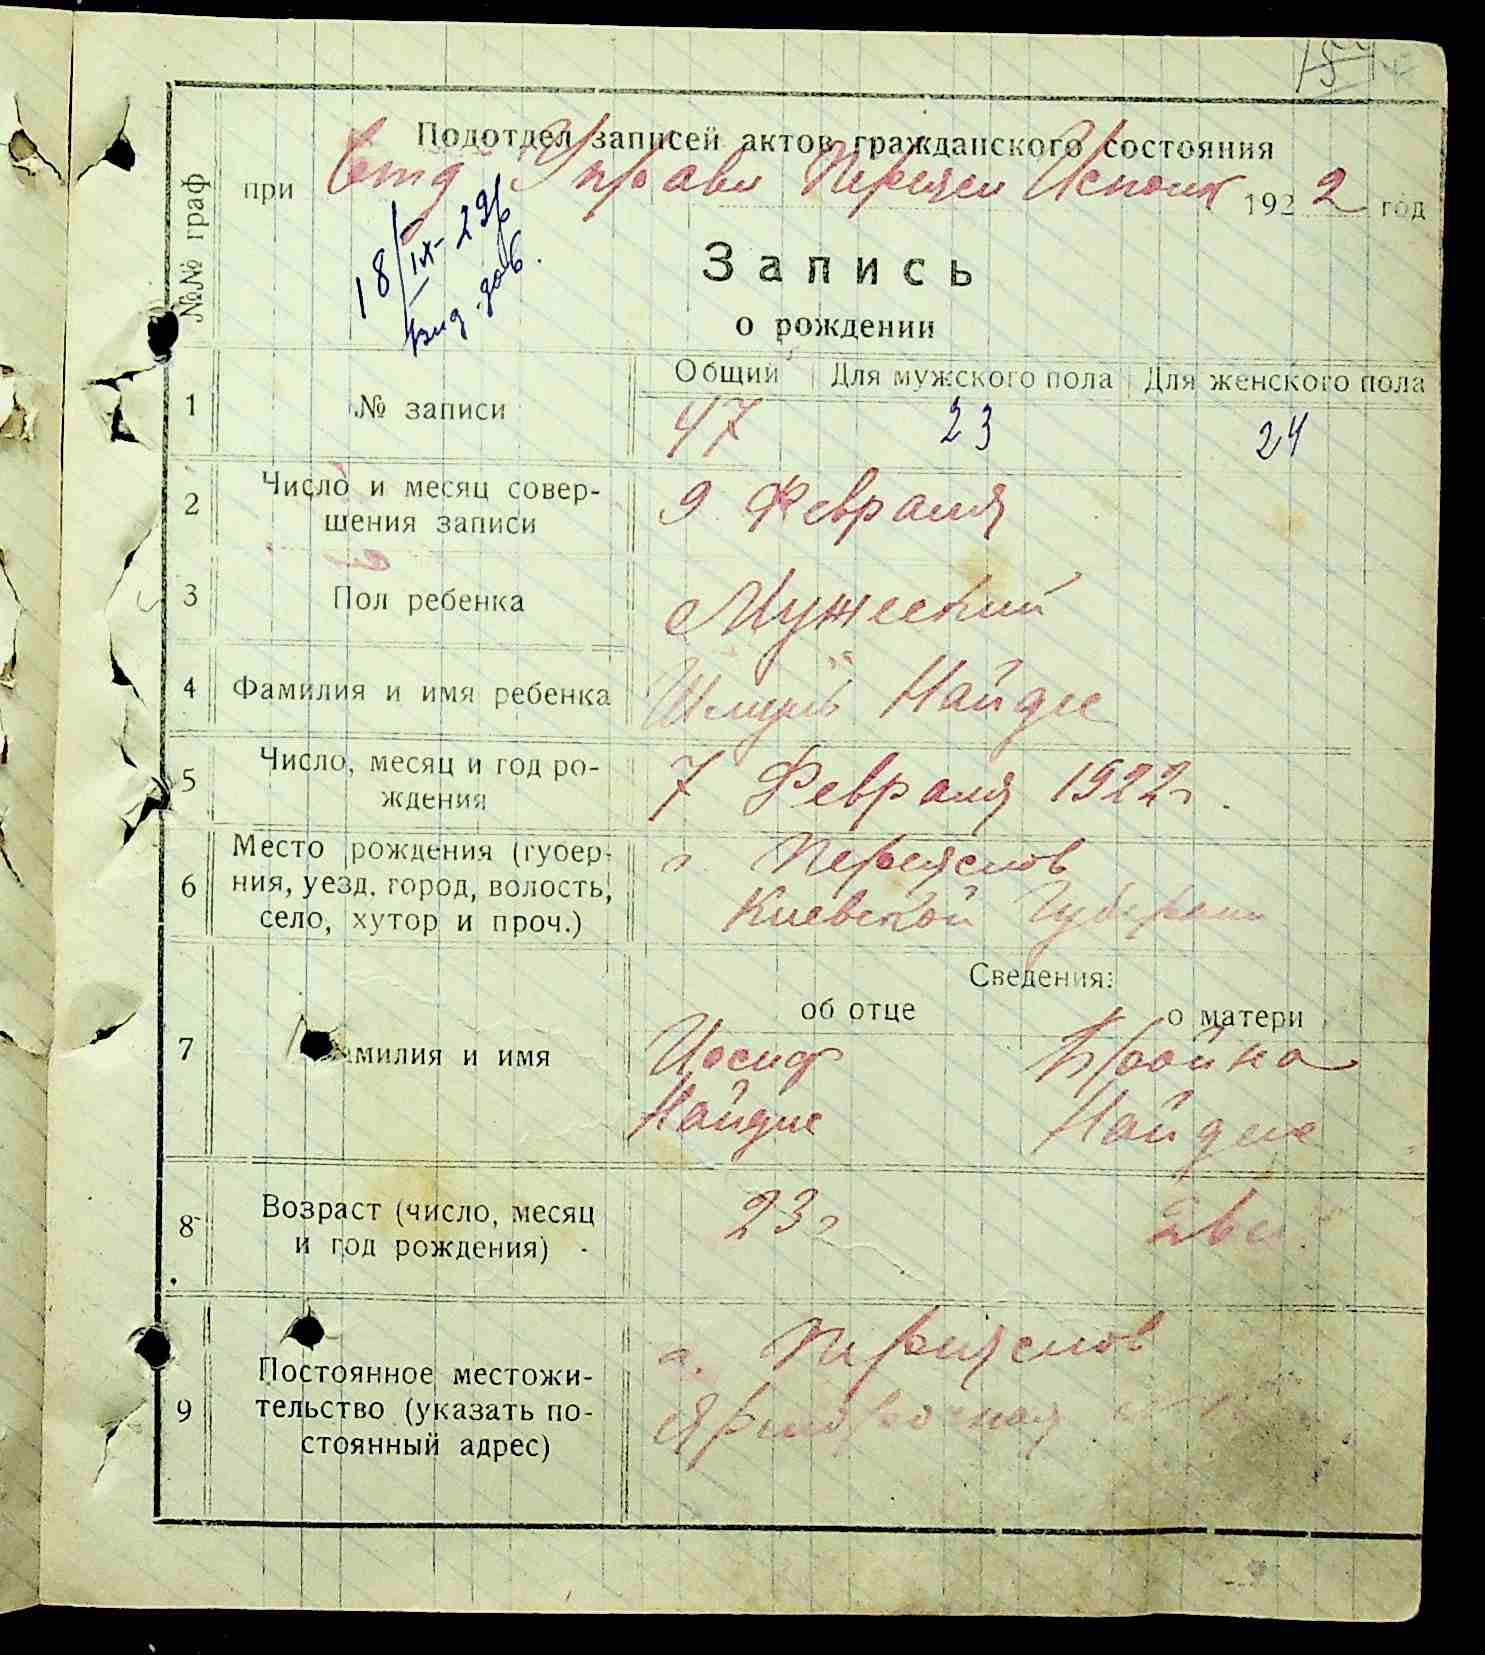 Подотдел записей актов гражданского состояния
при Отд Управл Переясл Исполк 1922 год
18/IX-29р
вид. дов.
№№ граф
Запись
о рождении
Общий Для мужского пола Для женского пола
1 № записи 47 23 24
2 Число и месяц совер-
шения записи 9 Февраля
3 Пол ребенка Мужеский
4 Фамилия и имя ребенка Найдис
5 Число, месяц и год ро-
ждения 7 Февраля 1922 г.
6 Место рождения (губер-
ния, уезд, город, волость,
село, хутор и проч.) г. Переяслов
Киевской Губернии
Сведения:
об отце о матери
7 амилия и имя Иосиф Бройна
Найдис Найдис
8 Возраст (число, месяц
и год рождения) 23 г
9 Постоянное местожи-
тельство (указать по-
стоянный адрес) г. Переяслов
Ярмарочная